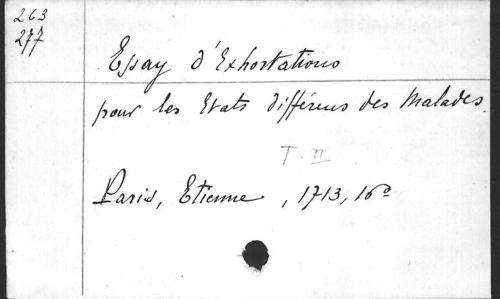 263
277
Essay d'Exhortations
pour les Etats différens des Malades.
T. II
Paris, Etienne, 1713, 16º